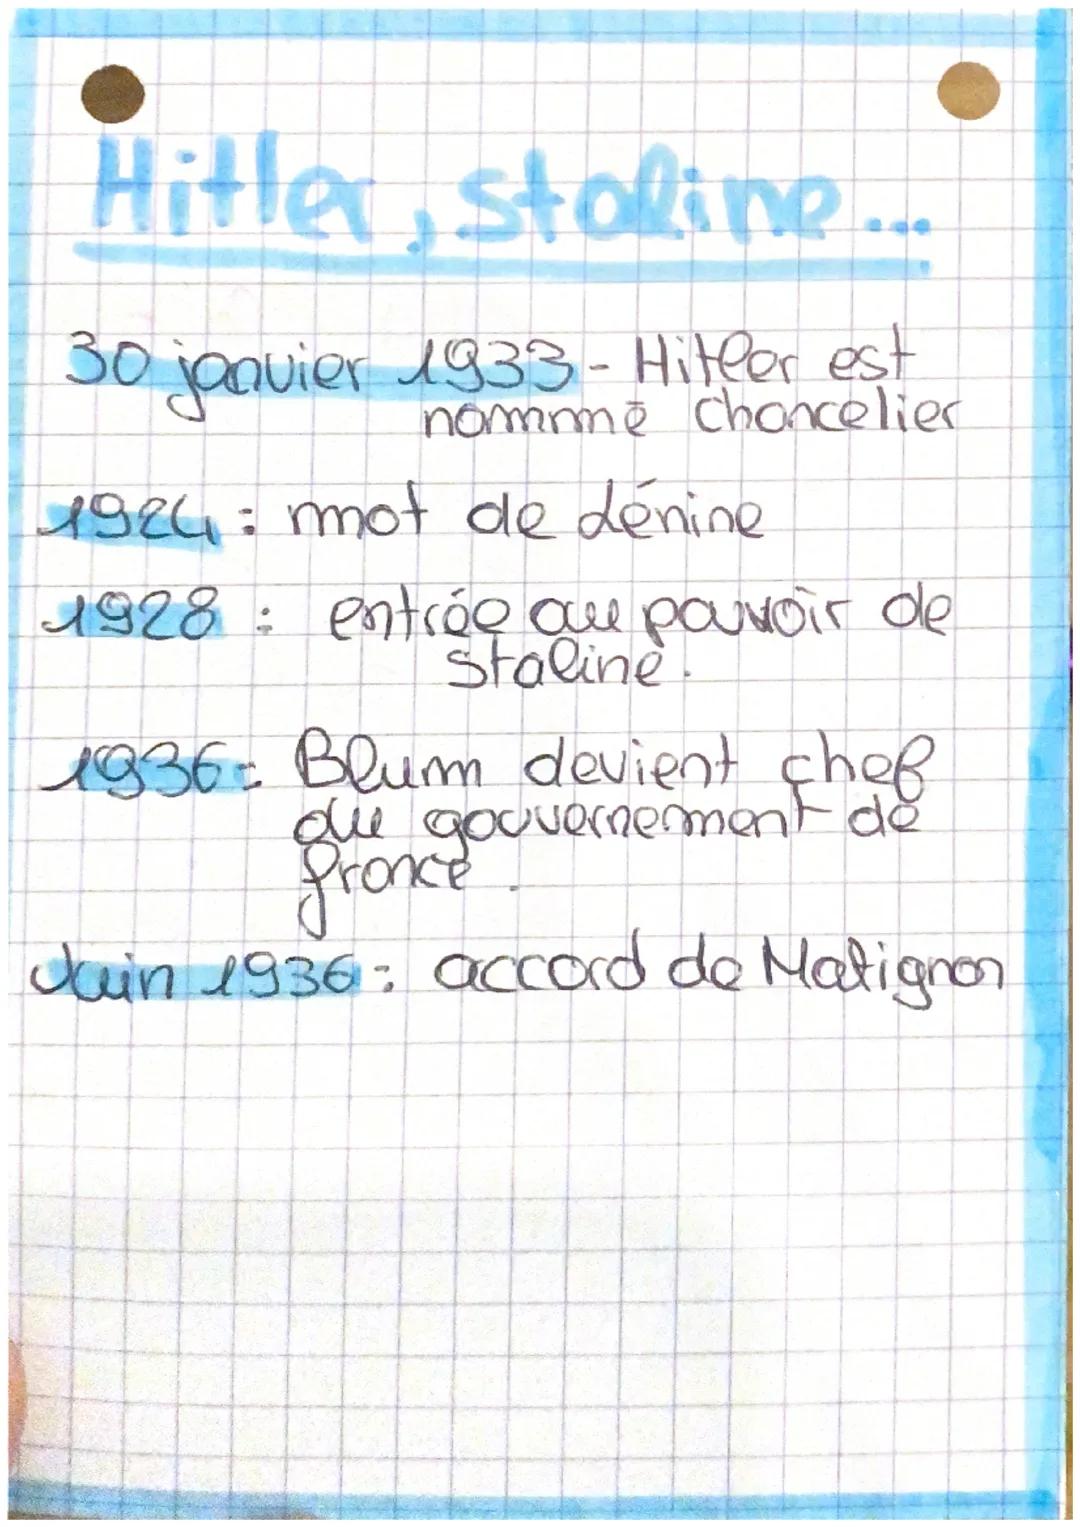 Hitler, staline...
30 janvier 1933 - Hitler est
nommé chancelier
1924 : mot de Lénine
1928 : entrée au pouvoir de
staline.
1936 : Blum devient chef
du gouvernement de
france.
Juin 1936 : accord de Matignon